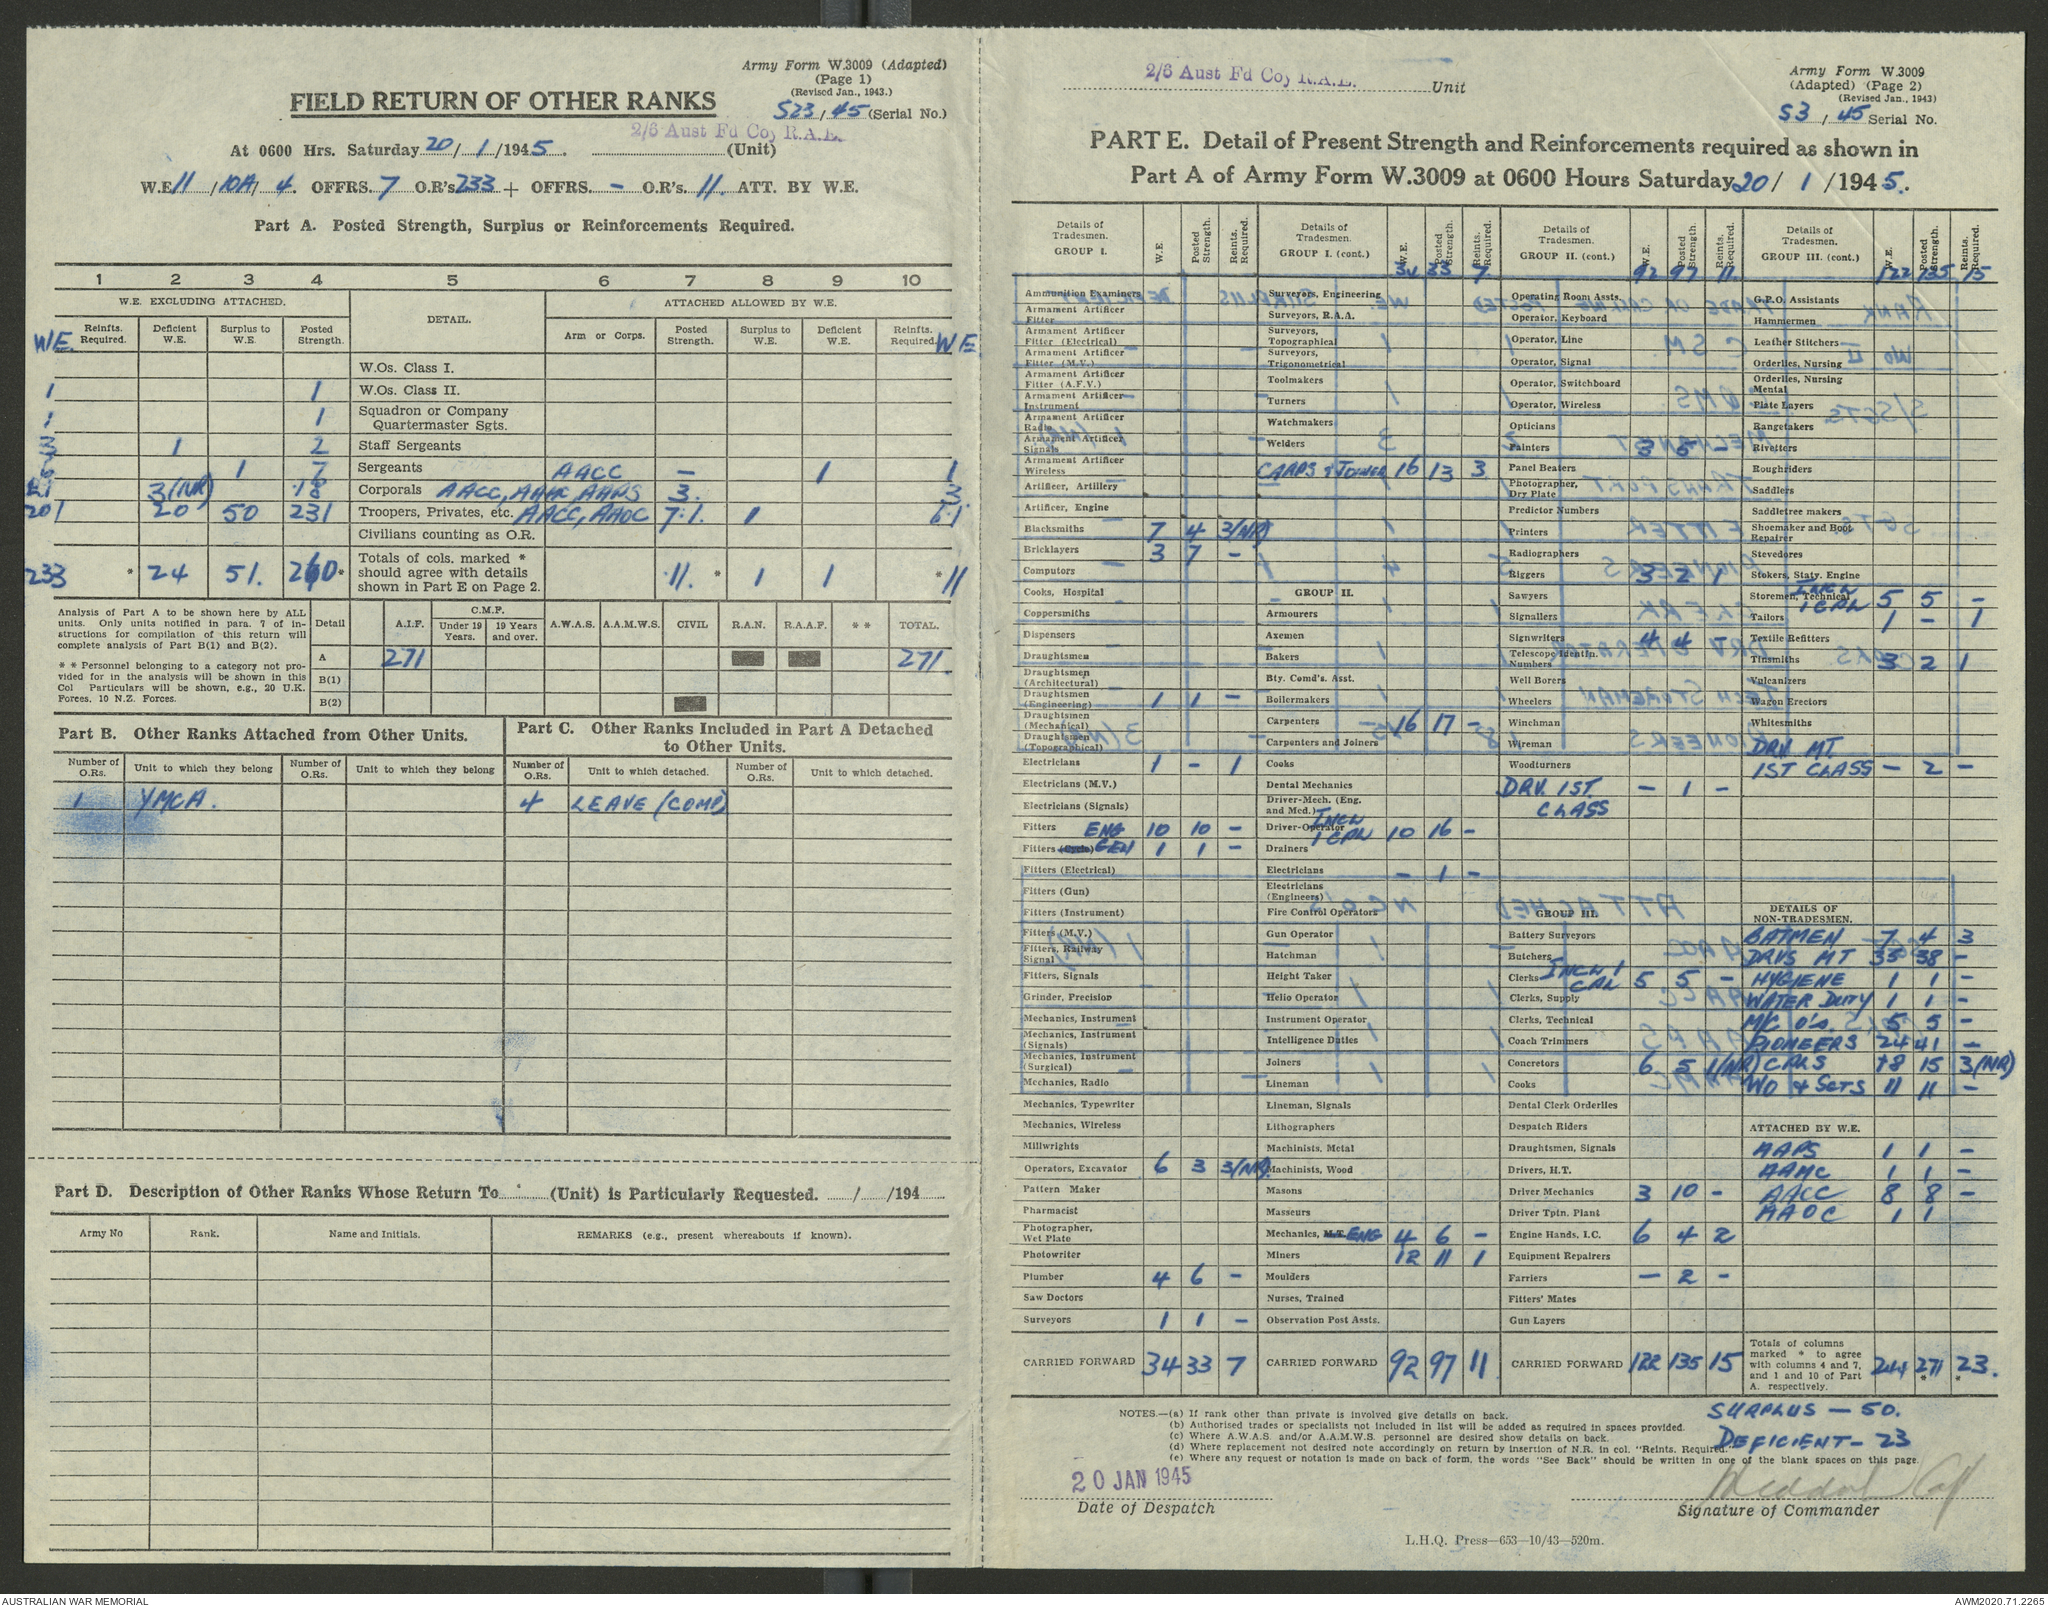 Army Form W.3009 (Adapted)
(Page 1)
(Revised Jan., 1943.)
FIELD RETURN OF OTHER RANKS
S23/45 (Serial No.)
2/6 Aust Fd Coy R.A.E.
At 0600 Hrs. Saturday 20/1/1945. (Unit)
W.E. 11/10A/4. OFFRS. 7 O.R's 233 + OFFRS. – O.R's. 11. ATT. BY W.E.
Part A. Posted Strength, Surplus or Reinforcements Required.
1 2 3 4 5 6 7 8 9 10
W.E. EXCLUDING ATTACHED. DETAIL. ATTACHED ALLOWED BY W.E.
WE. Reinfts. Required. Deficient W.E. Surplus to W.E. Posted Strength. Arm or Corps. Posted Strength. Surplus to W.E. Deficient W.E. Reinfts. Required. WE
W.Os. Class I.
1 1 W.Os. Class II.
1 1 Squadron or Company Quartermaster Sgts.
3 1 2 Staff Sergeants
1 7 Sergeants AACC – 1 1
21 3(NR) 18 Corporals AACC, AAMC, AAPS 3. 3.
201 20 50 231 Troopers, Privates, etc. AACC, AAOC 7. 1
Civilians counting as O.R.
233 * 24 51. 260* Totals of cols. marked * should agree with details shown in Part E on Page 2. 11. * 1 1 * 11
Analysis of Part A to be shown here by ALL units. Only units notified in para. 7 of instructions for compilation of this return will complete analysis of Part B(1) and B(2).
* * Personnel belonging to a category not provided for in the analysis will be shown in this Col Particulars will be shown, e.g., 20 U.K. Forces, 10 N.Z. Forces.
Detail A.I.F. C.M.F. Under 19 Years. 19 Years and over. A.W.A.S. A.A.M.W.S. CIVIL R.A.N. R.A.A.F. * * TOTAL.
A 271 271
B(1)
B(2)
Part B. Other Ranks Attached from Other Units.
Part C. Other Ranks Included in Part A Detached to Other Units.
Number of O.Rs. Unit to which they belong Number of O.Rs. Unit to which they belong Number of O.Rs. Unit to which detached. Number of O.Rs. Unit to which detached.
1 YMCA. 4 LEAVE (COMP)
Part D. Description of Other Ranks Whose Return To (Unit) is Particularly Requested. / /194
Army No Rank. Name and Initials. REMARKS (e.g., present whereabouts if known).
2/6 Aust Fd Coy R.A.E. Unit
Army Form W.3009
(Adapted) (Page 2)
(Revised Jan., 1943)
S3/45 Serial No.
PART E. Detail of Present Strength and Reinforcements required as shown in
Part A of Army Form W.3009 at 0600 Hours Saturday 20/1/1945.
Details of Tradesmen. GROUP I. W.E Posted Strength. Reints. Required.
Ammunition Examiners
Armament Artificer Fitter
Armament Artificer Fitter (Electrical)
Armament Artificer Fitter (M.V.)
Armament Artificer Fitter (A.F.V.)
Armament Artificer Instrument
Armament Artificer Radio
Armament Artificer Signals
Armament Artificer Wireless
Artificer, Artillery
Artificer, Engine
Blacksmiths 7 4 3(NR)
Bricklayers 3 7 –
Computors
Cooks, Hospital
Coppersmiths
Dispensers
Draughtsmen
Draughtsmen (Architectural)
Draughtsmen (Engineering) 1 1 –
Draughtsmen (Mechanical)
Draughtsmen (Topographical)
Electricians 1 – 1
Electricians (M.V.)
Electricians (Signals)
Fitters ENG 10 10 –
Fitters (Cycle) GEN 1 1 –
Fitters (Electrical)
Fitters (Gun)
Fitters (Instrument)
Fitters (M.V.)
Fitters, Railway Signal
Fitters, Signals
Grinder, Precision
Mechanics, Instrument
Mechanics, Instrument (Signals)
Mechanics, Instrument (Surgical)
Mechanics, Radio
Mechanics, Typewriter
Mechanics, Wireless
Millwrights
Operators, Excavator 6 3 3(NR)
Pattern Maker
Pharmacist
Photographer, Wet Plate
Photowriter
Plumber 4 6 –
Saw Doctors
Surveyors 1 1 –
CARRIED FORWARD 34 33 7
Details of Tradesmen. GROUP I. (cont.) W.E. Posted Strength. Reints. Required.
34 33 7
Surveyors, Engineering
Surveyors, R.A.A.
Surveyors, Topographical
Surveyors, Trigonometrical
Toolmakers
Turners
Watchmakers
Welders
CARPS & JOINER 16 13 3
GROUP II.
Armourers
Axemen
Bakers
Bty. Comd's. Asst.
Boilermakers
Carpenters 16 17 –
Carpenters and Joiners
Cooks
Dental Mechanics
Driver-Mech. (Eng. and Med.)
Driver-Operator INCL 1 CPL 10 16 –
Drainers
Electricians – 1 –
Electricians (Engineers)
Fire Control Operators
Gun Operator
Hatchman
Height Taker
Helio Operator
Instrument Operator
Intelligence Duties
Joiners
Lineman
Lineman, Signals
Lithographers
Machinists, Metal
Machinists, Wood
Masons
Masseurs
Mechanics, M.T. ENG 4 6 –
Miners 12 11 1
Moulders
Nurses, Trained
Observation Post Assts.
CARRIED FORWARD 92 97 11
Details of Tradesmen. GROUP II. (cont.) W.E. Posted Strength. Reints. Required.
92 97 11
Operating Room Assts.
Operator, Keyboard
Operator, Line
Operator, Signal
Operator, Switchboard
Operator, Wireless
Opticians
Painters 3 5 –
Panel Beaters
Photographer, Dry Plate
Predictor Numbers
Printers
Radiographers
Riggers 3 2 1
Sawyers
Signallers
Signwriters 4 4
Telescope Identfn. Numbers
Well Borers
Wheelers
Winchman
Wireman
Woodturners
DRV. 1ST. CLASS – 1 –
GROUP III.
Battery Surveyors
Butchers
Clerks INCL 1 CPL 5 5 –
Clerks, Supply
Clerks, Technical
Coach Trimmers
Concretors 6 5 1(NR)
Cooks
Dental Clerk Orderlies
Despatch Riders
Draughtsmen, Signals
Drivers, H.T.
Driver Mechanics 3 10 –
Driver Tptn. Plant
Engine Hands, I.C. 6 4 2
Equipment Repairers
Farriers – 2 –
Fitters' Mates
Gun Layers
CARRIED FORWARD 122 135 15
Details of Tradesmen. GROUP III. (cont.) W.E. Posted Strength. Reints. Required.
122 135 15
G.P.O. Assistants
Hammermen
Leather Stitchers
Orderlies, Nursing
Orderlies, Nursing Mental
Plate Layers
Rangetakers
Rivetters
Roughriders
Saddlers
Saddletree makers
Shoemaker and Boot Repairer
Stevedores
Stokers, Staty. Engine
Storemen, Technical INCL 1 CPL 5 5 –
Tailors 1 – 1
Textile Refitters
Tinsmiths 3 2 1
Vulcanizers
Wagon Erectors
Whitesmiths
DRV. MT.
1ST CLASS – 2 –
DETAILS OF NON-TRADESMEN.
BATMEN 7 4 3
DRVS MT 35 38 –
HYGIENE 1 1 –
WATER DUTY 1 1 –
M/C O's. 5 5 –
PIONEERS 24 41 –
CPLS 18 15 3(NR)
WO & SGTS 11 11 –
ATTACHED BY W.E.
AAPS 1 1 –
AAMC 1 1 –
AACC 8 8 –
AAOC 1 1
Totals of columns marked * to agree with columns 4 and 7, and 1 and 10 of Part A. respectively. 244 271* 23.*
SURPLUS – 50.
DEFICIENT – 23
NOTES.—(a) If rank other than private is involved give details on back.
(b) Authorised trades or specialists not included in list will be added as required in spaces provided.
(c) Where A.W.A.S. and/or A.A.M.W.S. personnel are desired show details on back.
(d) Where replacement not desired note accordingly on return by insertion of N.R. in col. "Reints. Required."
(e) Where any request or notation is made on back of form, the words "See Back" should be written in one of the blank spaces on this page.
20 JAN 1945
Date of Despatch
Signature of Commander
L.H.Q. Press—653—10/43—520m.
AUSTRALIAN WAR MEMORIAL
AWM2020.71.2265